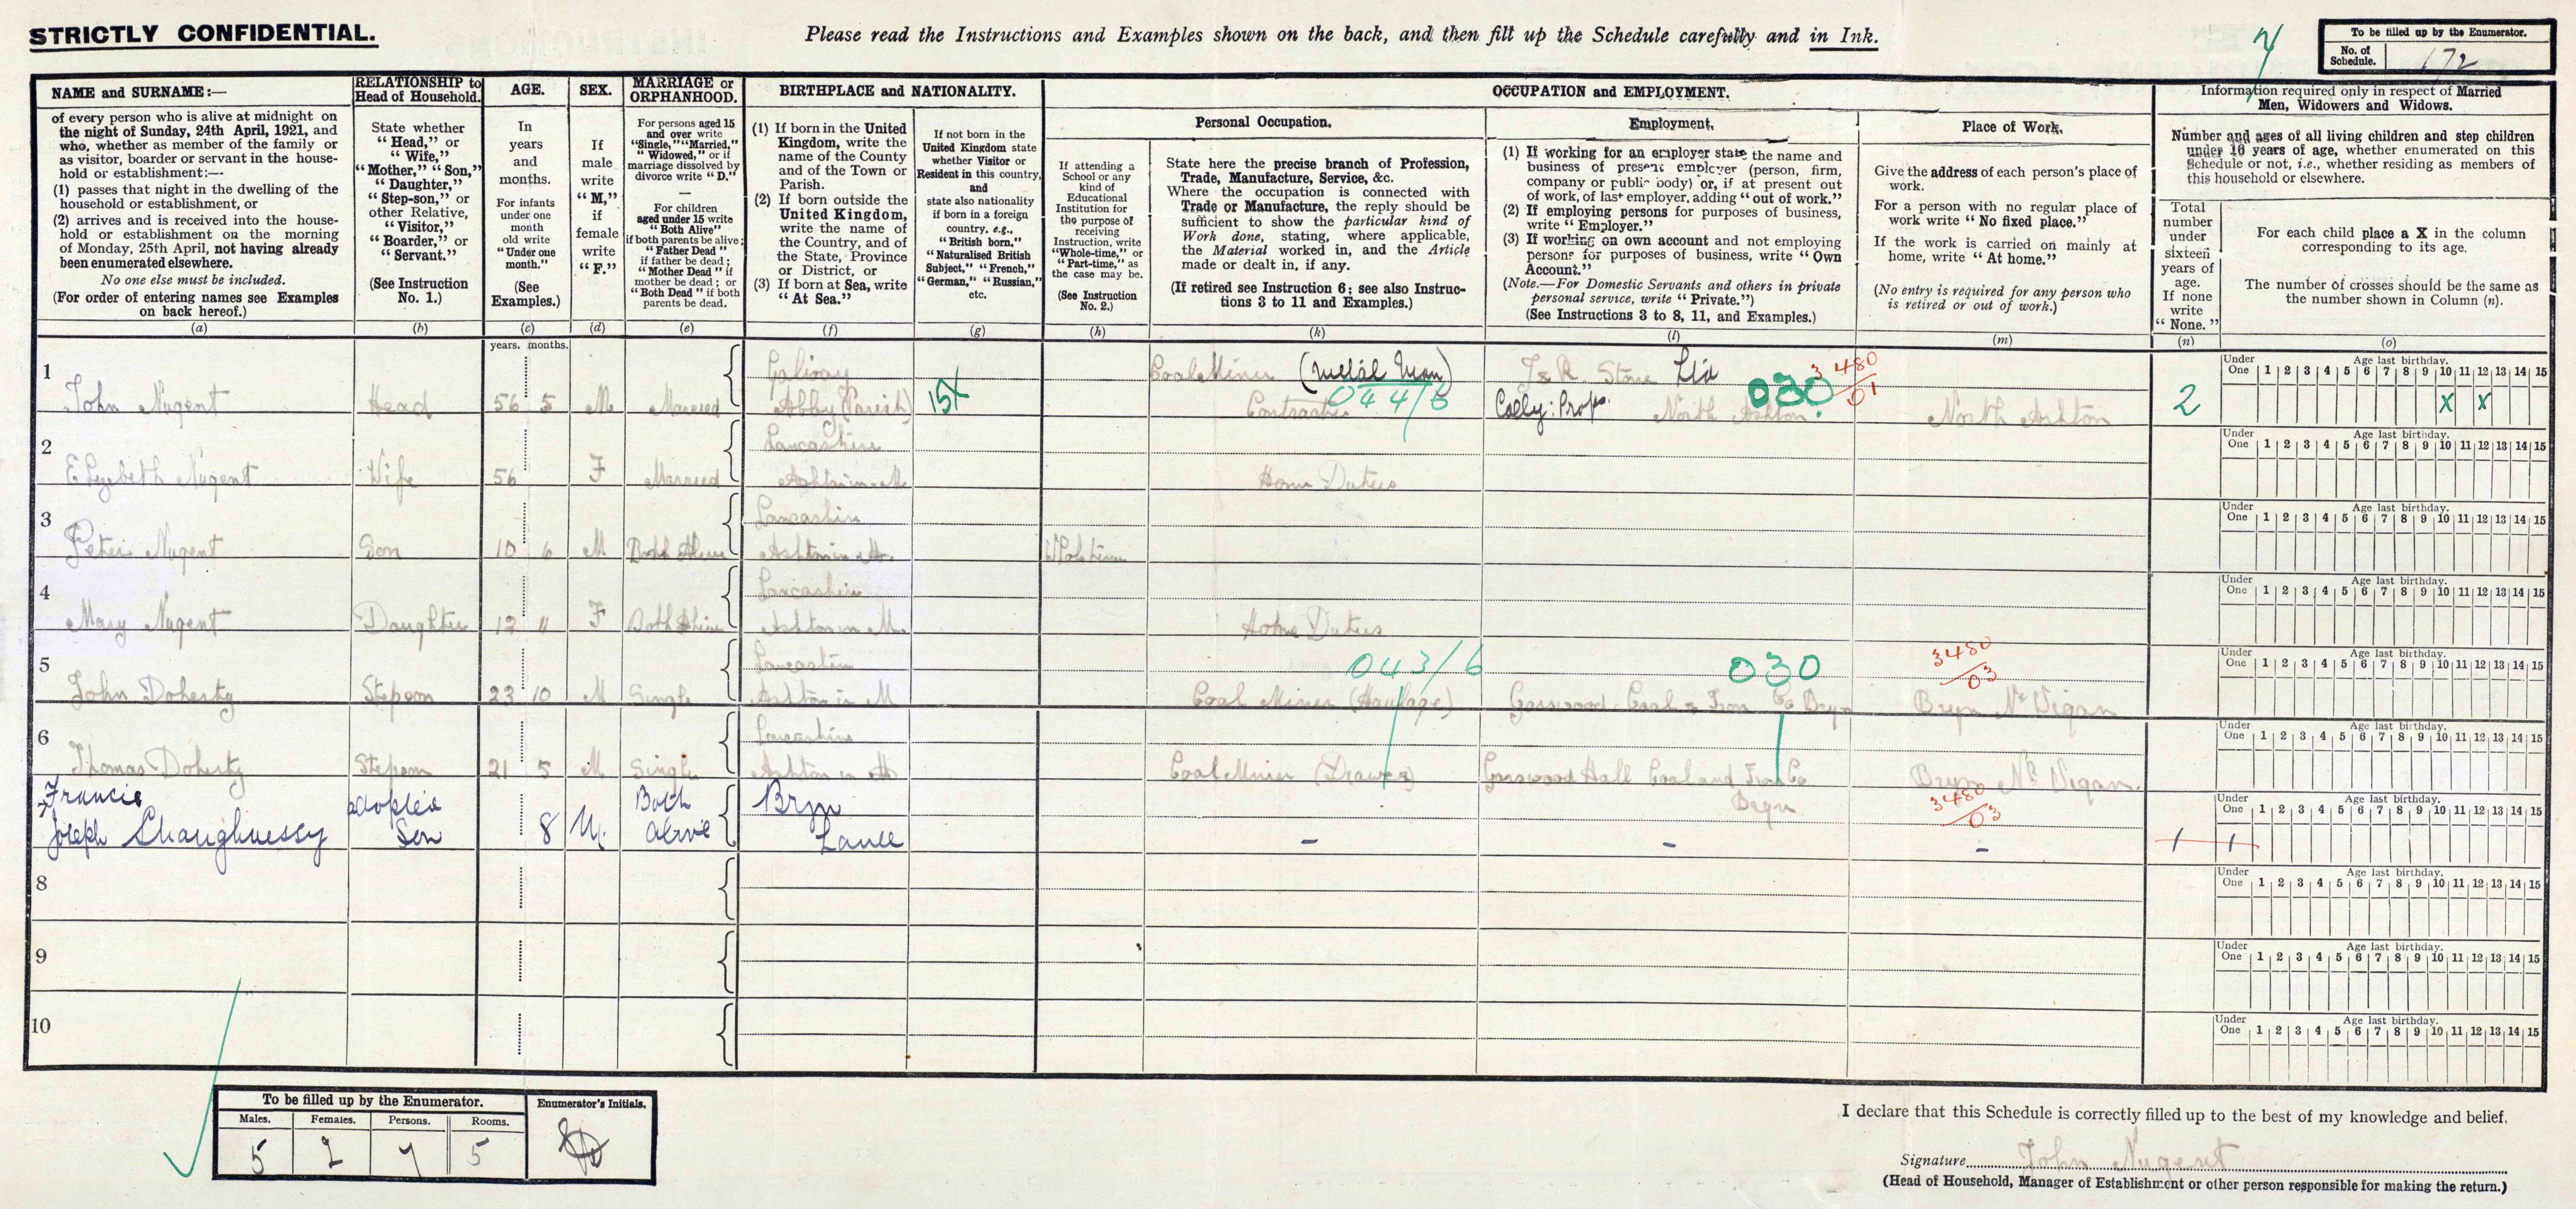 STRICTLY CONFIDENTIAL.
Please read the Instructions and Examples shown on the back, and then fill up the Schedule carefully and in Ink.
7
To be filled up by the Enumerator.
No. of Schedule. 172
NAME and SURNAME:—
of every person who is alive at midnight on
the night of Sunday, 24th April, 1921, and
who, whether as member of the family or
as visitor, boarder or servant in the house-
hold or establishment:—
(1) passes that night in the dwelling of the
household or establishment, or
(2) arrives and is received into the house-
hold or establishment on the morning
of Monday, 25th April, not having already
been enumerated elsewhere.
No one else must be included.
(For order of entering names see Examples
on back hereof.)
(a)
RELATIONSHIP to
Head of Household.
State whether
"Head," or
"Wife,"
"Mother," "Son,"
"Daughter,"
"Step-son," or
other Relative,
"Visitor,"
"Boarder," or
"Servant."
(See Instruction
No. 1.)
(b)
AGE.
In
years
and
months.
For infants
under one
month
old write
"Under one
month."
(See
Examples.)
(c)
SEX.
If
male
write
"M,"
if
female
write
"F."
(d)
MARRIAGE or
ORPHANHOOD.
For persons aged 15
and over write
"Single," "Married,"
"Widowed," or if
marriage dissolved by
divorce write "D."
—
For children
aged under 15 write
"Both Alive"
if both parents be alive;
"Father Dead"
if father be dead;
"Mother Dead" if
mother be dead; or
"Both Dead" if both
parents be dead.
(e)
BIRTHPLACE and NATIONALITY.
(1) If born in the United
Kingdom, write the
name of the County
and of the Town or
Parish.
(2) If born outside the
United Kingdom,
write the name of
the Country, and of
the State, Province
or District, or
(3) If born at Sea, write
"At Sea."
(f)
If not born in the
United Kingdom state
whether Visitor or
Resident in this country,
and
state also nationality
if born in a foreign
country, e.g.,
"British born,"
"Naturalised British
Subject," "French,"
"German," "Russian,"
etc.
(g)
OCCUPATION and EMPLOYMENT.
Personal Occupation.
If attending a
School or any
kind of
Educational
Institution for
the purpose of
receiving
Instruction, write
"Whole-time," or
"Part-time," as
the case may be.
(See Instruction
No. 2.)
(h)
State here the precise branch of Profession,
Trade, Manufacture, Service, &c.
Where the occupation is connected with
Trade or Manufacture, the reply should be
sufficient to show the particular kind of
Work done, stating, where applicable,
the Material worked in, and the Article
made or dealt in, if any.
(If retired see Instruction 6; see also Instruc-
tions 3 to 11 and Examples.)
(k)
Employment.
(1) If working for an employer state the name and
business of present employer (person, firm,
company or public body) or, if at present out
of work, of last employer, adding "out of work."
(2) If employing persons for purposes of business,
write "Employer."
(3) If working on own account and not employing
persons for purposes of business, write "Own
Account."
(Note.—For Domestic Servants and others in private
personal service, write "Private.")
(See Instructions 3 to 8, 11, and Examples.)
(l)
Place of Work.
Give the address of each person's place of
work.
For a person with no regular place of
work write "No fixed place."
If the work is carried on mainly at
home, write "At home."
(No entry is required for any person who
is retired or out of work.)
(m)
Information required only in respect of Married
Men, Widowers and Widows.
Number and ages of all living children and step children
under 16 years of age, whether enumerated on this
Schedule or not, i.e., whether residing as members of
this household or elsewhere.
Total
number
under
sixteen
years of
age.
If none
write
"None."
(n)
For each child place a X in the column
corresponding to its age.
The number of crosses should be the same as
the number shown in Column (n).
(o)
years. months.
1 Galway Coal Miner (Metal Man) T & R. Stone Ltd 3480/01
John Nugent Head 56 5 M Married Abby (Parish) 15X Contractor 044/6 Colly: Props. North Ashton 030 North Ashton 2 X X
Under One Age last birthday. 1 2 3 4 5 6 7 8 9 10 11 12 13 14 15
2 Lancashire
Elizebeth Nugent Wife 56 F Married Ashton in M Home Duties
Under One Age last birthday. 1 2 3 4 5 6 7 8 9 10 11 12 13 14 15
3 Lancashire
Peter Nugent Son 10 6 M Both Alive Ashton in M. Whole time
Under One Age last birthday. 1 2 3 4 5 6 7 8 9 10 11 12 13 14 15
4 Lancashire
Mary Nugent Daughter 12 11 F Both Alive Ashton in M. Home Duties
Under One Age last birthday. 1 2 3 4 5 6 7 8 9 10 11 12 13 14 15
5 Lancashire 043/6 030 3480/03
John Doherty Stepson 23 10 M Single Ashton in M Coal Miner (Haulage) Garswood Coal & Iron Co Bryn Bryn Nr Wigan
Under One Age last birthday. 1 2 3 4 5 6 7 8 9 10 11 12 13 14 15
6 Lancashire
Thomas Doherty Stepson 21 5 M Single Ashton in M Coal Miner (Drawer) Garswood Hall Coal and Iron Co Bryn Nr Wigan.
Under One Age last birthday. 1 2 3 4 5 6 7 8 9 10 11 12 13 14 15
Bryn 3480/03
7 Francis adopted Both Bryn
Joseph Shaughnessy Son 8 M. Alive Lancs - - -
Under One Age last birthday. 1 2 3 4 5 6 7 8 9 10 11 12 13 14 15
8
Under One Age last birthday. 1 2 3 4 5 6 7 8 9 10 11 12 13 14 15
9
Under One Age last birthday. 1 2 3 4 5 6 7 8 9 10 11 12 13 14 15
10
Under One Age last birthday. 1 2 3 4 5 6 7 8 9 10 11 12 13 14 15
To be filled up by the Enumerator.
Males. Females. Persons. Rooms.
5 2 7 5
Enumerator's Initials.
I declare that this Schedule is correctly filled up to the best of my knowledge and belief.
Signature John Nugent
(Head of Household, Manager of Establishment or other person responsible for making the return.)